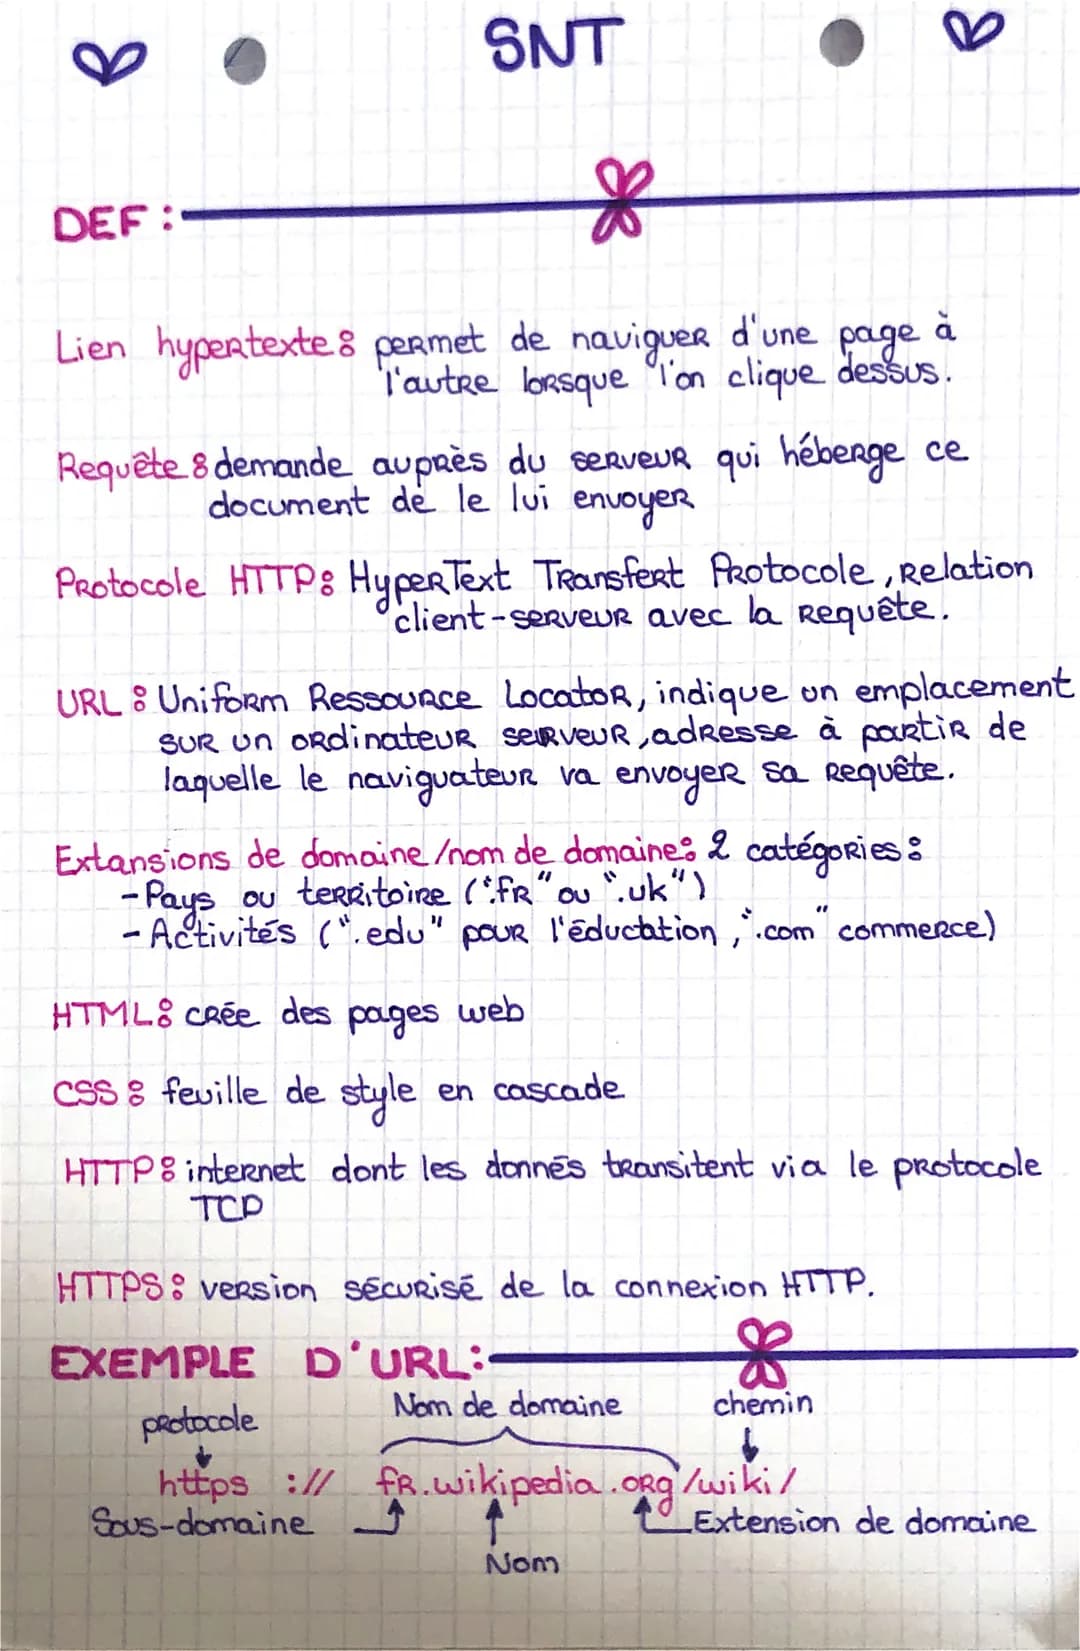 SNT
DEF :
Lien hypertexte : permet de naviguer d'une page à
l'autre lorsque l'on clique dessus.
Requête : demande auprès du serveur qui héberge ce
document de le lui envoyer
Protocole HTTP : HyperText Transfert Protocole, relation
client-serveur avec la requête.
URL : Uniform Ressource Locator, indique un emplacement
sur un ordinateur serveur, adresse à partir de
laquelle le naviguateur va envoyer sa requête.
Extansions de domaine/nom de domaine : 2 catégories :
- Pays ou territoire (".fr" ou ".uk")
- Activités (".edu" pour l'éducation, ".com" commerce)
HTML : crée des pages web
CSS : feuille de style en cascade
HTTP : internet dont les donnés transitent via le protocole
TCP
HTTPS : version sécurisé de la connexion HTTP.
EXEMPLE D'URL :
Nom de domaine chemin
protocole
https :// fr.wikipedia.org/wiki/
Sous-domaine Extension de domaine
Nom